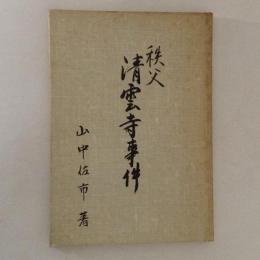 秩父
清雲寺事件
山中佐市 著